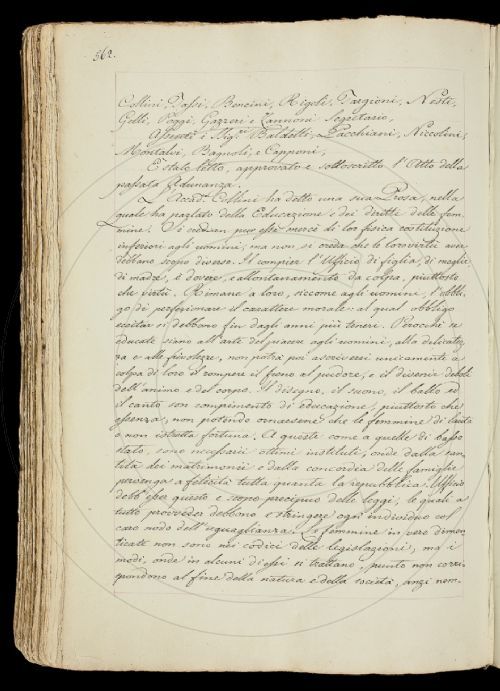 562.
Collini, Tassi, Bencini, Rigoli, Targioni, Nesti,
Gelli, Poggi, Gazzeri e Zannoni Segretario,
Assenti i Sig.ri Baldelli, Zacchiani, Niccolini,
Montalvi, Bagnoli, e Capponi,
È stato letto, approvato e sottoscritto l'Atto della
passata Adunanza.
L'Accad. Collini ha detto una sua Prosa, nella
quale ha parlato della Educazione e dei diritti delle fem-
mine. Si credean pur esse mercè di lor fisica costituzione
inferiori agli uomini; ma non si creda che le loro virtù aver
debbano scopo diverso. Il compier l'Ufficio di figlia, di moglie
di madre, è dovere, e allontanamento da colpa, piuttosto
che virtù. Rimane a loro, siccome agli uomini, l'obbli-
go di perfezionare il carattere morale: al qual obbligo
eccitar si debbono fin dagli anni più teneri. Perocchè se
educate siano all'arte del piacere agli uomini, alla delicatez-
za e alle finezze, non potrà poi ascriversi unicamente a
colpa di loro il rompere il freno al pudore, e il divenir deboli
dell'animo e del corpo. Il disegno, il suono, il ballo ed
il canto son compimento di educazione, piuttosto che
essenza, non potendo ornarsene che le femmine di lauta
o non ristretta fortuna. A queste come a quelle di basso
stato, sono necessarii ottimi instituti, onde dalla san-
tità dei matrimonii e dalla concordia delle famiglie
provenga a felicità tutta quanta la repubblica. Ufficio
debb'esser questo e scopo precipuo delle leggi, le quali a
tutto provveder debbono e stringere ogni individuo col
caro nodo dell'eguaglianza. Le femmine in vero dimen-
ticate non sono nei codici delle legislazioni; ma i
modi, onde in alcuni di essi si trattano, punto non corris-
pondono al fine della natura e della società, anzi nem-